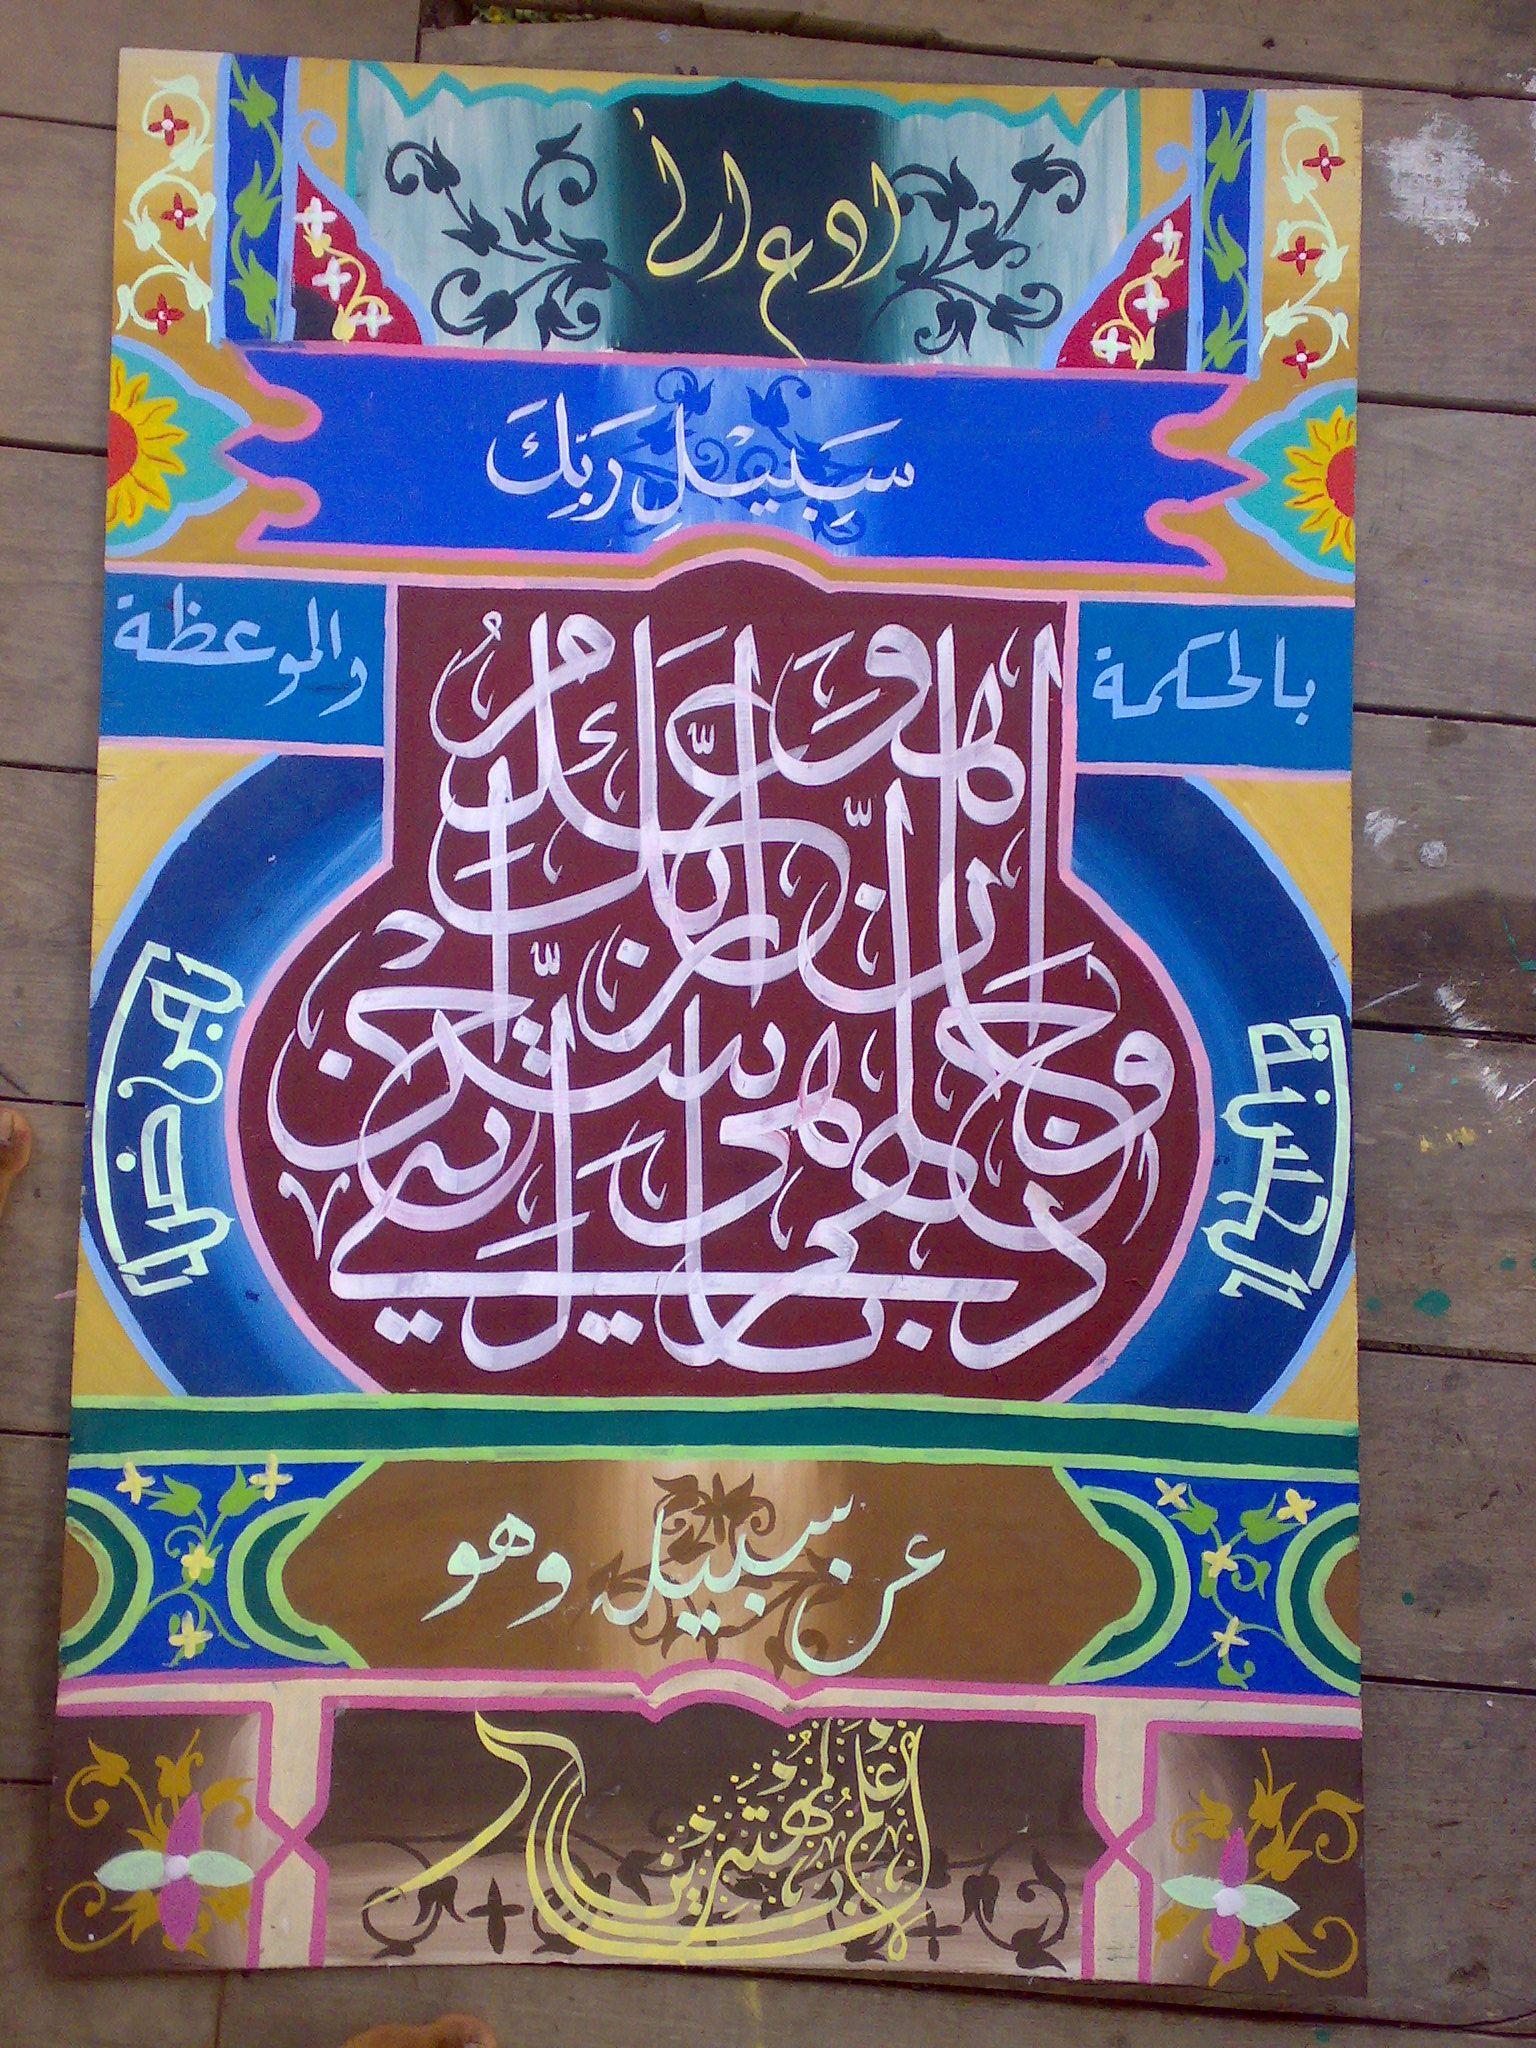 ادع الى
سَبِيْلِ رَبِّكَ
بالحكمة والموعظة
الحسنة
وجادلهم بالتي هي احسن ان ربك هو اعلم
بمن ضل
عن سبيله وهو
اعلم بالمهتدين